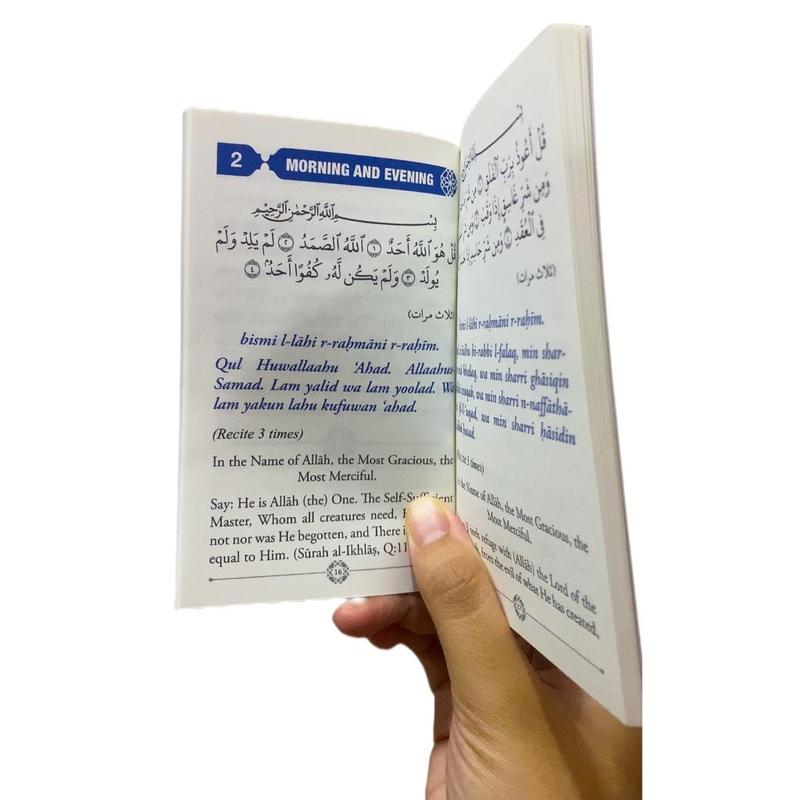 2
MORNING AND EVENING
بِسْمِ ٱللَّهِ ٱلرَّحْمَٰنِ ٱلرَّحِيمِ
قُلْ هُوَ ٱللَّهُ أَحَدٌ ١ ٱللَّهُ ٱلصَّمَدُ ٢ لَمْ يَلِدْ وَلَمْ
يُولَدْ ٣ وَلَمْ يَكُن لَّهُۥ كُفُوًا أَحَدٌۢ ٤
(ثلاث مرات)
bismi l-lāhi r-raḥmāni r-raḥīm.
Qul Huwallaahu ‘Ahad. Allaahus-
Samad. Lam yalid wa lam yoolad. Wa
lam yakun lahu kufuwan ‘ahad.
(Recite 3 times)
In the Name of Allāh, the Most Gracious, the
Most Merciful.
Say: He is Allāh (the) One. The Self-Sufficient
Master, Whom all creatures need,
not nor was He begotten, and There
equal to Him. (Sūrah al-Ikhlāṣ, Q:11
16
قُلْ أَعُوذُ بِرَبِّ ٱلْفَلَقِ ١ مِن شَرِّ
وَمِن شَرِّ غَاسِقٍ إِذَا وَقَبَ ٣ وَمِن
فِى ٱلْعُقَدِ ٤ وَمِن شَرِّ
(ثلاث مرات)
r-raḥmāni r-raḥīm.
bi-rabbi l-falaq, min shar-
wa min sharri ghāsiqin
wa min sharri n-naffāthā-
wa min sharri ḥāsidin
ḥasad.
3 times)
the Name of Allāh, the Most Gracious, the
Most Merciful.
refuge with (Allāh) the Lord of the
from the evil of what He has created,